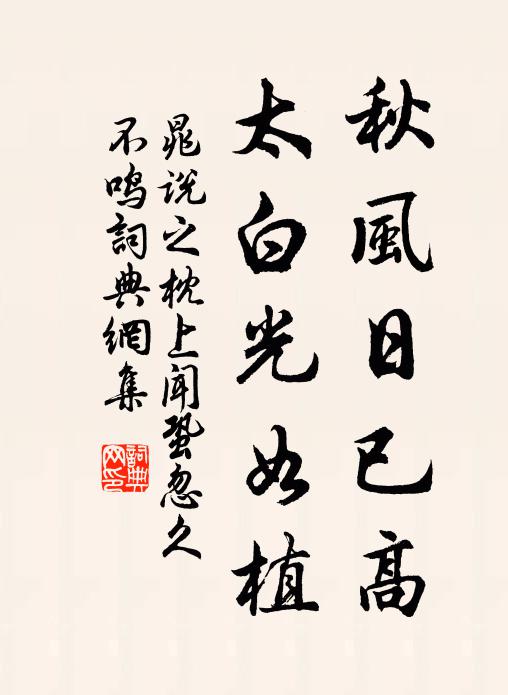 秋風日已高
太白光如植
晁说之枕上闻蛩忽久
不鸣詞典網集
詞典
网印